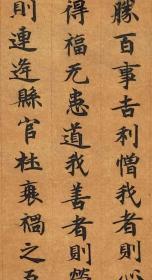 勝百事吉利憎我者則心
得福无患道我善者則鑒
則連迕縣官杜衰禍之至